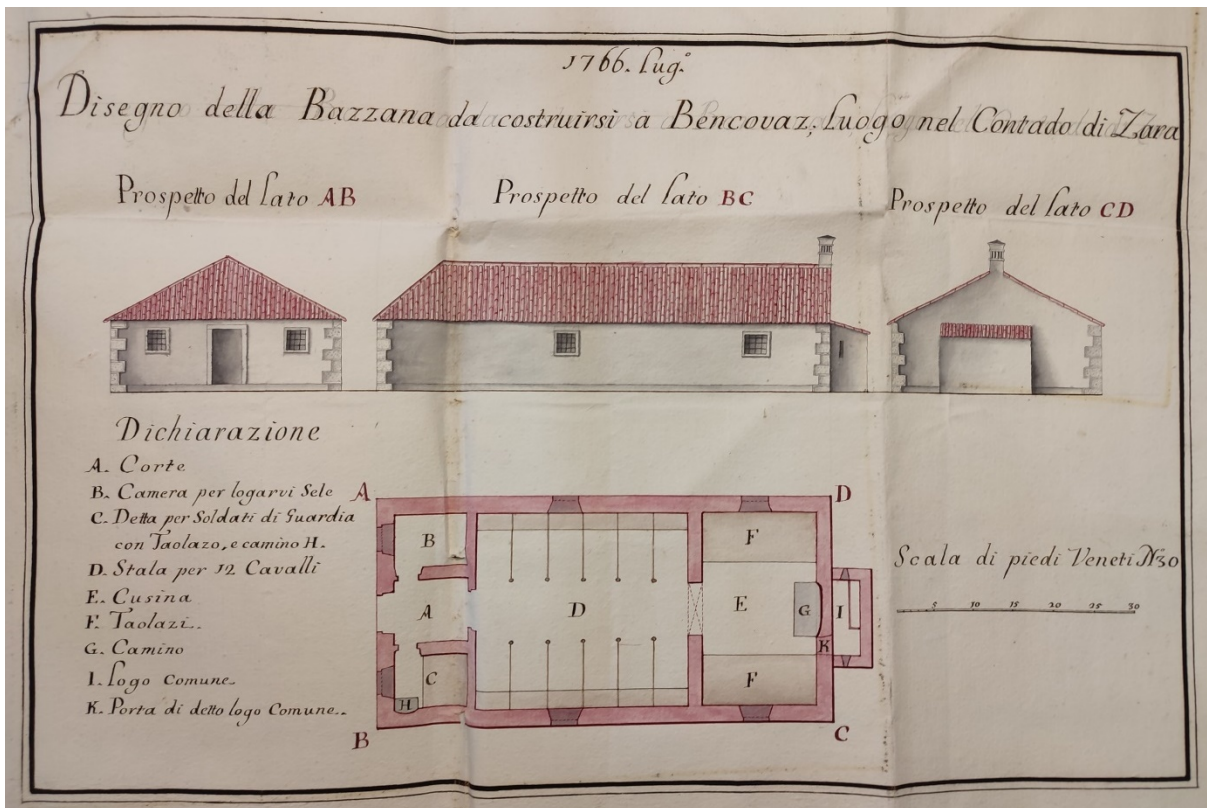 1766. Lug.º
Disegno della Bazzana da costruirsi a Bencovaz; Luogo nel Contado di Zara
Prospetto del Lato AB
Prospetto del Lato BC
Prospetto del Lato CD
Dichiarazione
A. Corte
B. Camera per logarvi Sele
C. Detta per Soldati di Guardia
con Taolazo, e camino H.
D. Stala per 12 Cavalli
E. Cusina
F. Taolazi.
G. Camino
I. Logo Comune.
K. Porta di detto logo Comune..
A
D
B
F
A
D
E
G
I
K
C
H
F
B
C
Scala di piedi Veneti Nº30
5 10 15 20 25 30